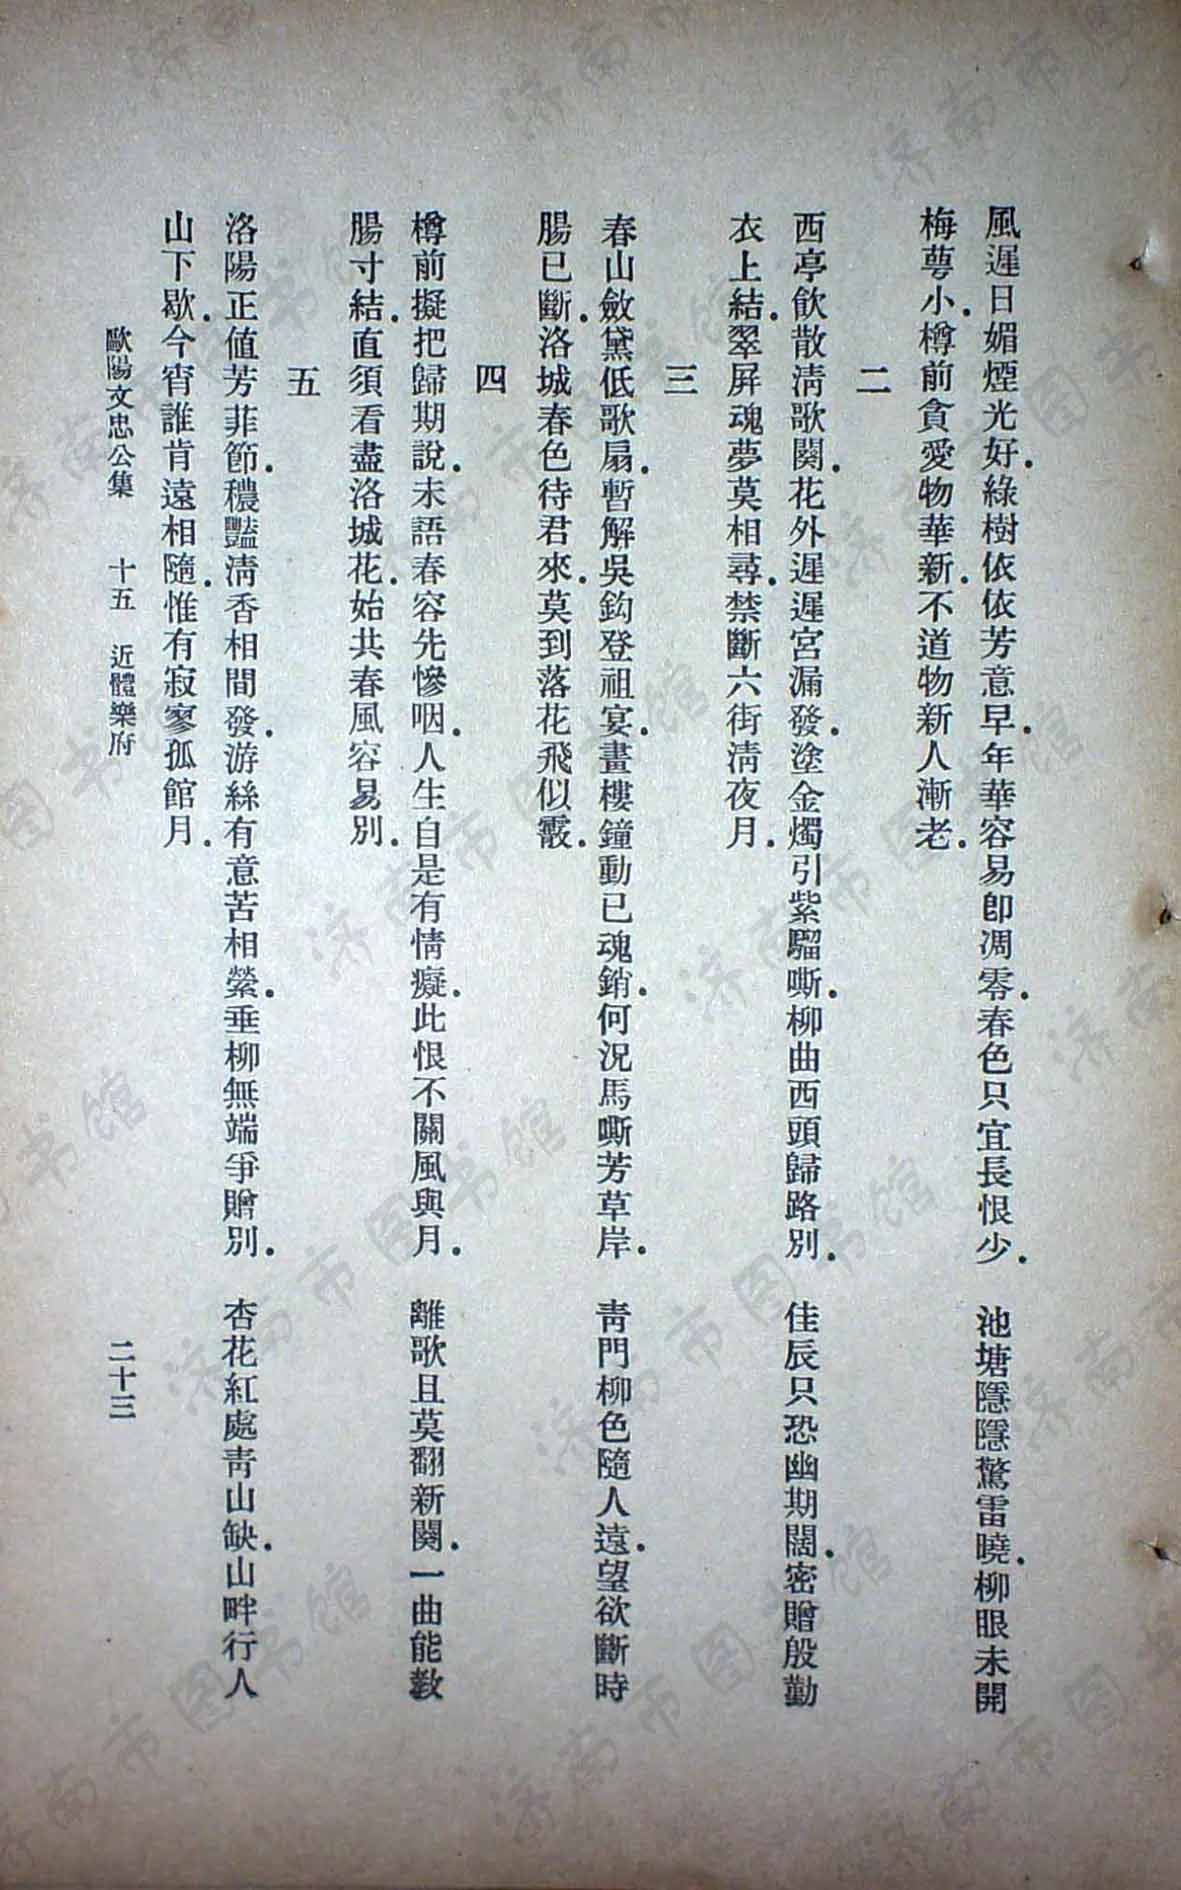 風遲日媚煙光好．綠樹依依芳意早．年華容易卽凋零．春色只宜長恨少．　池塘隱隱驚雷曉．柳眼未開
梅萼小．樽前貪愛物華新．不道物新人漸老．
二
西亭飲散淸歌闋．花外遲遲宮漏發．塗金燭引紫騮嘶．柳曲西頭歸路別．　佳辰只恐幽期闊．密贈殷勤
衣上結．翠屏魂夢莫相尋．禁斷六街淸夜月．
三
春山斂黛低歌扇．暫解吳鈎登祖宴．畫樓鐘動已魂銷．何況馬嘶芳草岸．　靑門柳色隨人遠．望欲斷時
腸已斷．洛城春色待君來．莫到落花飛似霰．
四
樽前擬把歸期說．未語春容先慘咽．人生自是有情癡．此恨不關風與月．　離歌且莫翻新闋．一曲能敎
腸寸結．直須看盡洛城花．始共春風容易別．
五
洛陽正値芳菲節．穠豔淸香相間發．游絲有意苦相縈．垂柳無端爭贈別．　杏花紅處靑山缺．山畔行人
山下歇．今宵誰肯遠相隨．惟有寂寥孤館月．
歐陽文忠公集　十五　近體樂府　二十三
济南市图书馆